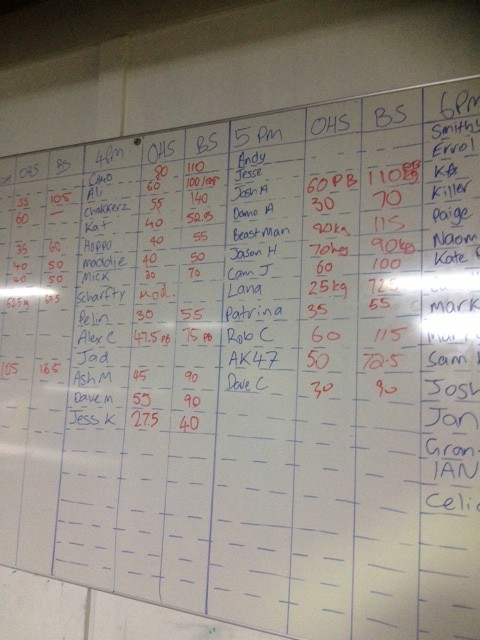 OHS BS
55 105
60
35 60
40 50
40 50
105 165
4pm OHS BS
80 110
Ali 60
Chakkerz 55 140
Kat 40
Hoppo 40 55
Maddie 40 50
Mick 30 70
Scharfty mod.
Pelin 30 55
Alex C 47.5 PB 75 PB
Jad
Ash M 45 90
Dave M 55 90
Jess K 27.5 40
5 PM OHS BS
Andy
Jesse
Josh A 60 PB 110
Damo A 30 70
Beastman 115
Jason H 70kgs 90kgs
Cam J 60 100
Lana 25kg
Patrina 35 55
Rob C 60 115
AK47 50 72.5
Dave C 30 90
6PM
Smithy
Errol
Killer
Paige
Naom
Kate
Mark
Sam
Josh
Jan
Gran
IAN
Celi